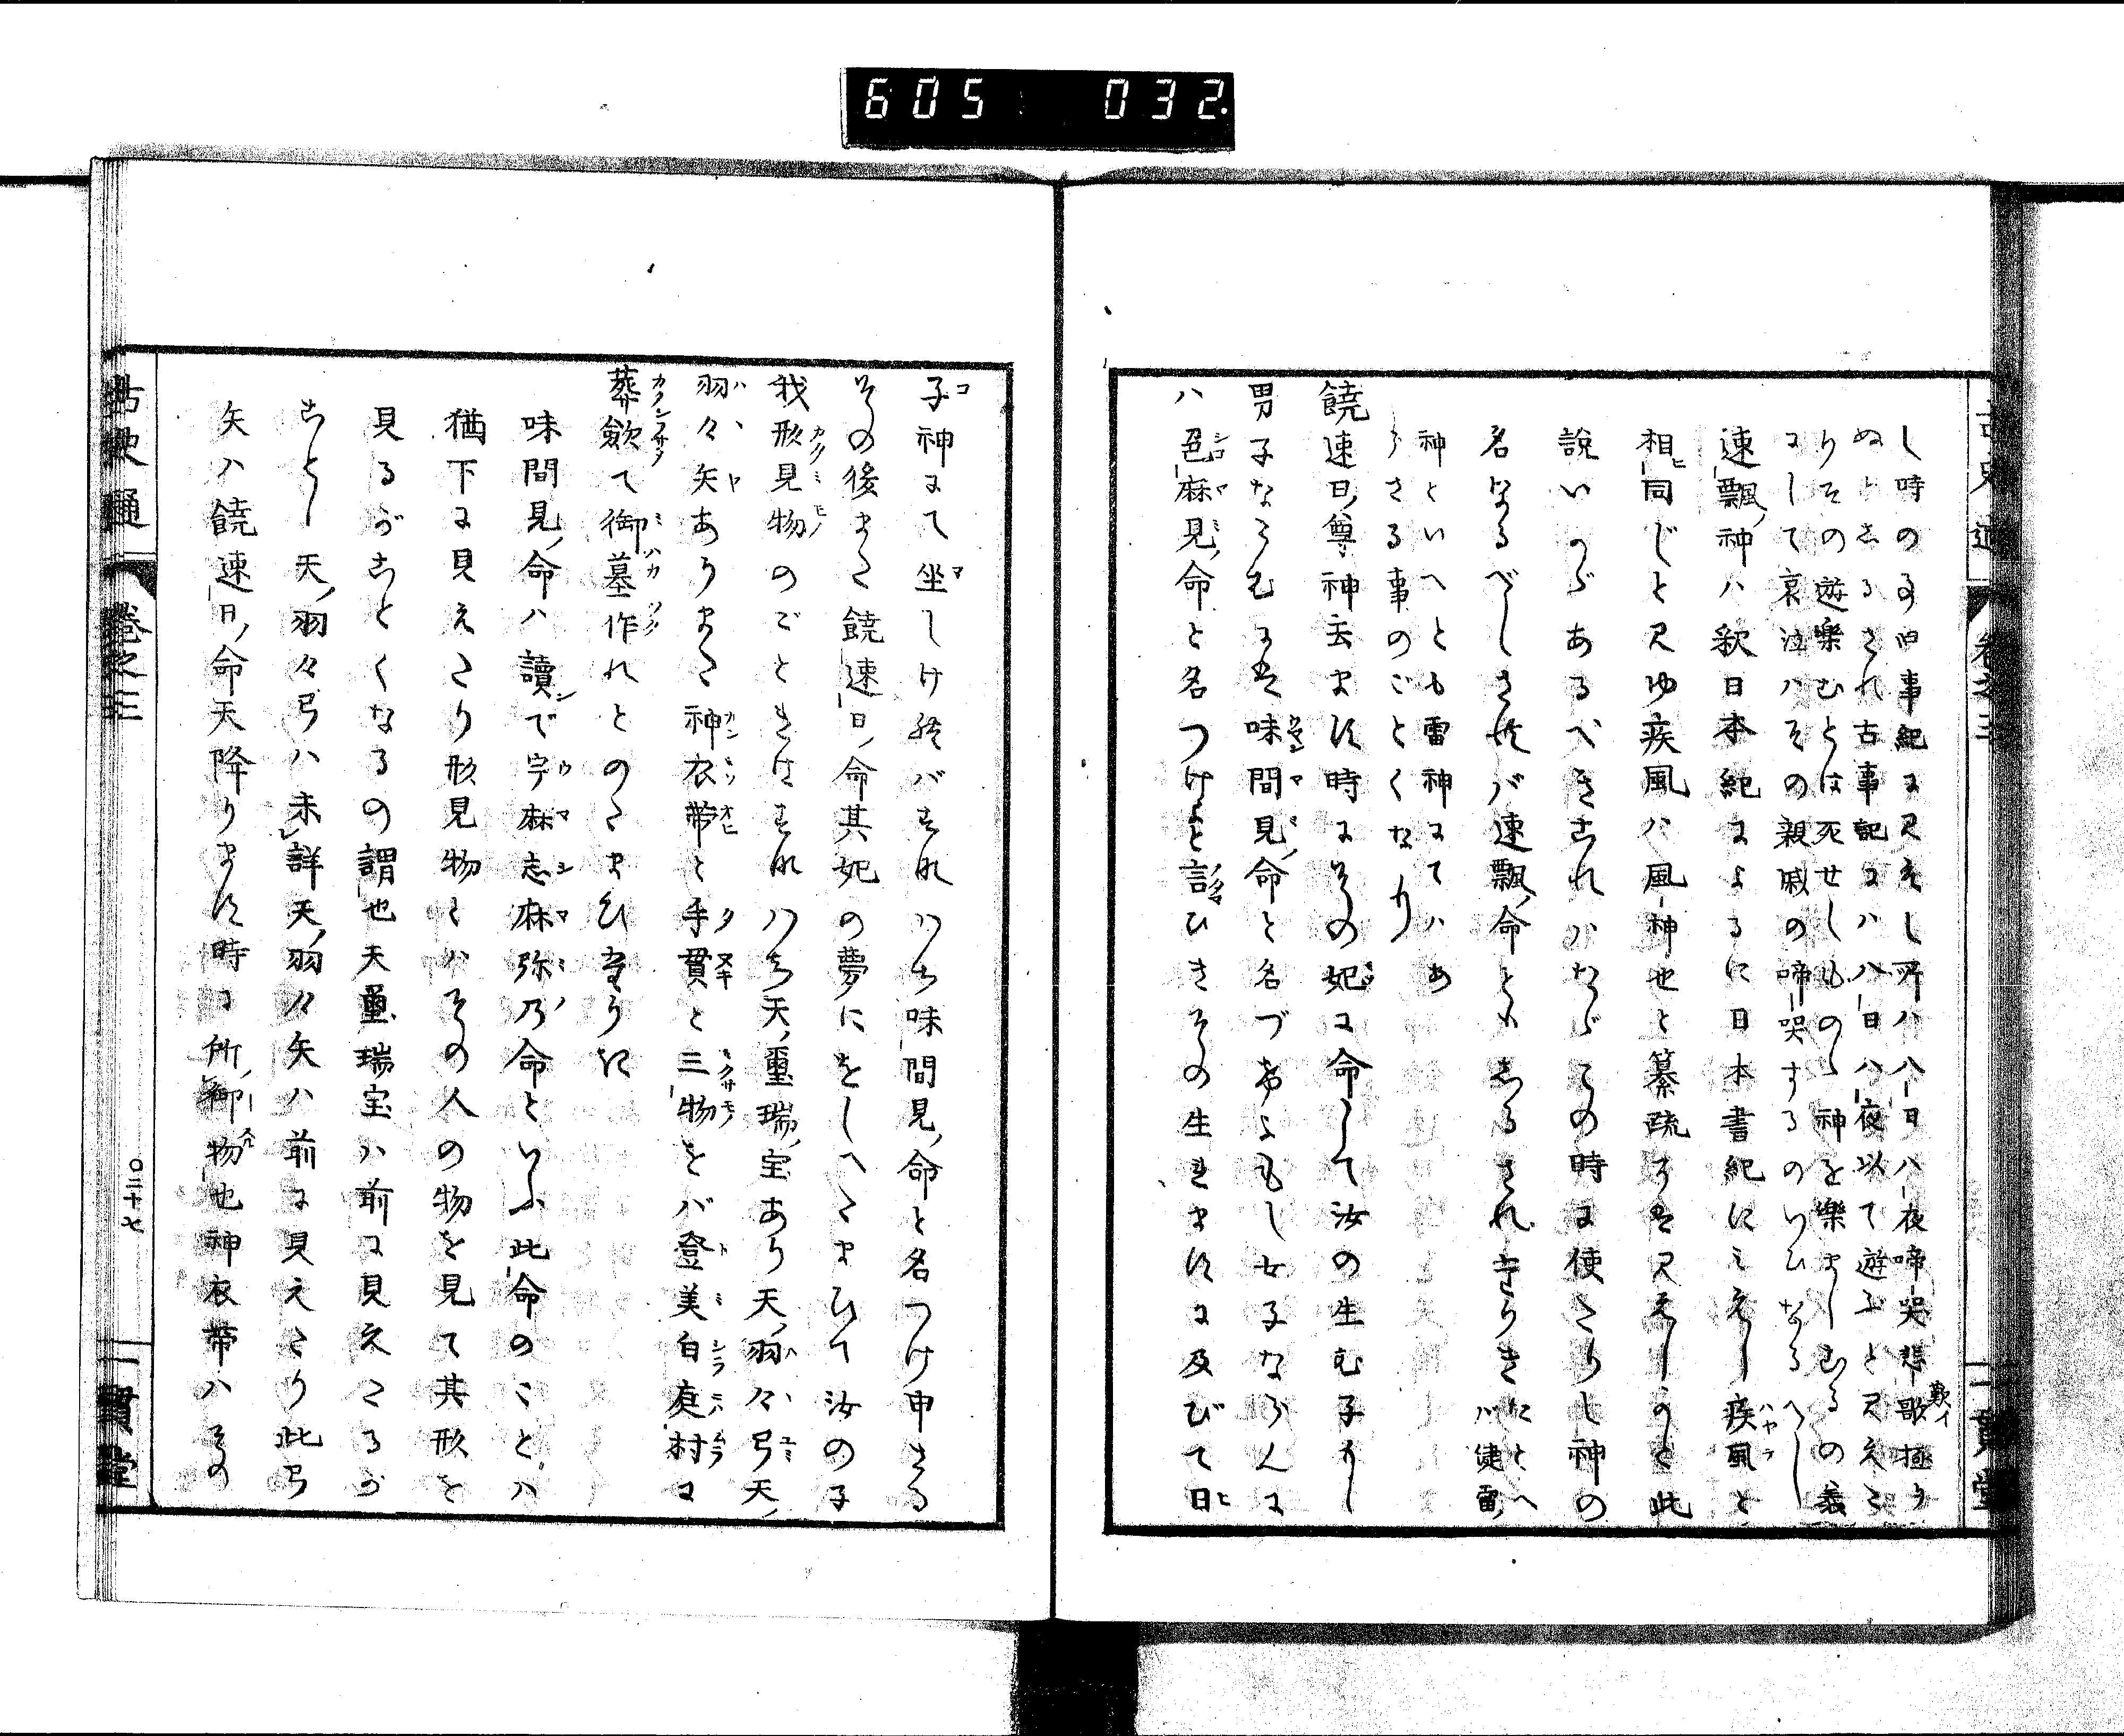 605 032
し時の旧事紀に見えし所ハ八日八夜啼哭悲歌極り
歎イ
ぬとしるされ古事記にハ八日八夜以て遊ふと見えた
りその遊樂むとは死せしものゝ神を樂ましむるの義
にして哀泣ハその親戚の啼哭するのいひなるへし
速飄神ハ釈日本紀によるに日本書紀にみえし疾風と
相同じと見ゆ疾風ハ風神也と纂疏にハ見えしかと此
説いかゞあるべきこれハたゞその時に使たりし神の
名なるべしされバ速飄命ともしるされきたりき たとへバ健雷
神といへとも雷神にてハあ
らさる事のごとくなり
饒速日尊神去ます時にその妃に命して汝の生む子もし
男子ならむにハ味間見命と名づけよもし女子ならんに
ハ色麻見命と名つけよと言ひきその生れますに及びて日
子神にて坐しけれバすなハち味間見命と名つけ申さる
その後また饒速日命其妃の夢にをしへたまひて汝の子
我形見物のごときはすなハち天璽瑞宝あり天羽々弓天
羽々矢ありまた神衣帯と手貫と三物をバ登美白庭村に
葬歛て御墓作れとのたまひたりき
味間見命ハ讀で宇麻志麻弥乃命といふ此命のことハ
猶下に見えたり形見物とハその人の物を見て其形を
見るがことくなるの謂也天璽瑞宝ハ前に見えたるが
ことし天羽々弓ハ未詳天羽々矢ハ前に見えたり此弓
矢ハ饒速日命天降ります時に所御物也神衣帯ハその
古史通 卷之三
〇二十七
一貫堂